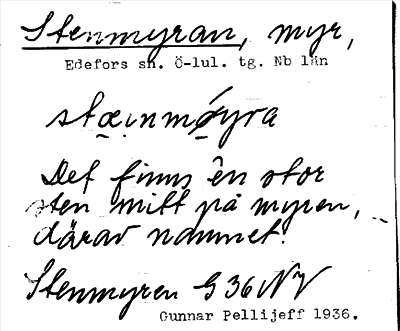 Stenmyran, myr,
Edefors sn. Ö-lul. tg. Nb län
stæ̱inmǿyra
Det finns ên stor
sten mitt på myren,
därav namnet.
Stenmyren G 36 NV
Gunnar Pellijeff 1936.